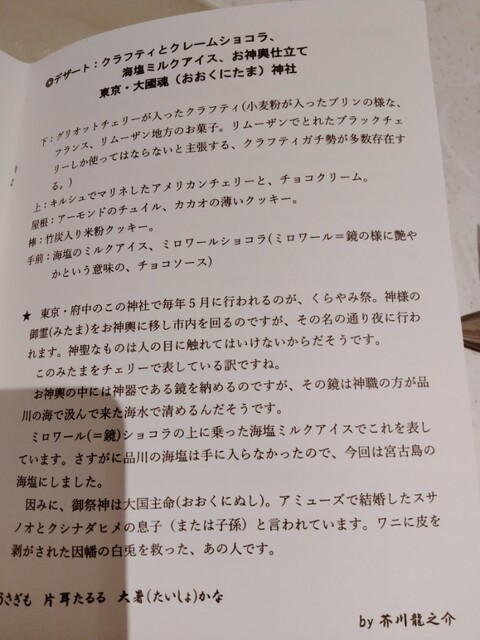 ◎デザート：クラフティとクレームショコラ、
海塩ミルクアイス、お神輿仕立て
東京・大國魂（おおくにたま）神社
下：グリオットチェリーが入ったクラフティ(小麦粉が入ったプリンの様な、
フランス、リムーザン地方のお菓子。リムーザンでとれたブラックチェ
リーしか使ってはならないと主張する、クラフティガチ勢が多数存在す
る。)
上：キルシュでマリネしたアメリカンチェリーと、チョコクリーム。
屋根：アーモンドのチュイル、カカオの薄いクッキー。
棒：竹炭入り米粉クッキー。
手前：海塩のミルクアイス、ミロワールショコラ(ミロワール＝鏡の様に艶や
かという意味の、チョコソース)
★ 東京・府中のこの神社で毎年５月に行われるのが、くらやみ祭。神様の
御霊(みたま)をお神輿に移し市内を回るのですが、その名の通り夜に行わ
れます。神聖なものは人の目に触れてはいけないからだそうです。
このみたまをチェリーで表している訳ですね。
お神輿の中には神器である鏡を納めるのですが、その鏡は神職の方が品
川の海で汲んで来た海水で清めるんだそうです。
ミロワール(＝鏡)ショコラの上に乗った海塩ミルクアイスでこれを表し
ています。さすがに品川の海塩は手に入らなかったので、今回は宮古島の
海塩にしました。
因みに、御祭神は大国主命(おおくにぬし)。アミューズで結婚したスサ
ノオとクシナダヒメの息子（または子孫）と言われています。ワニに皮を
剥がされた因幡の白兎を救った、あの人です。
うさぎも 片耳たるる 大暑(たいしょ)かな
by 芥川龍之介